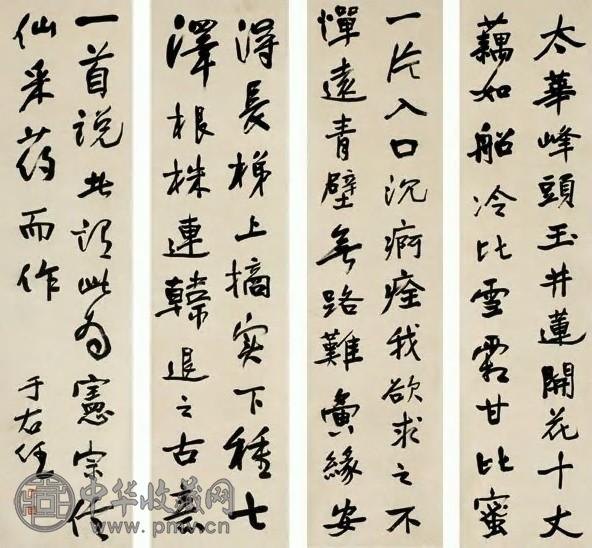 太華峰頭玉井蓮開花十丈
藕如船冷比雪霜甘比蜜
一片入口沉痾痊我欲求之不
憚遠青壁無路難夤緣安
得長梯上摘實下種七
澤根株連韓退之古意
一首说者谓此为憲宗
仙采药而作 于右任
中华收藏网
www.pmw.cn